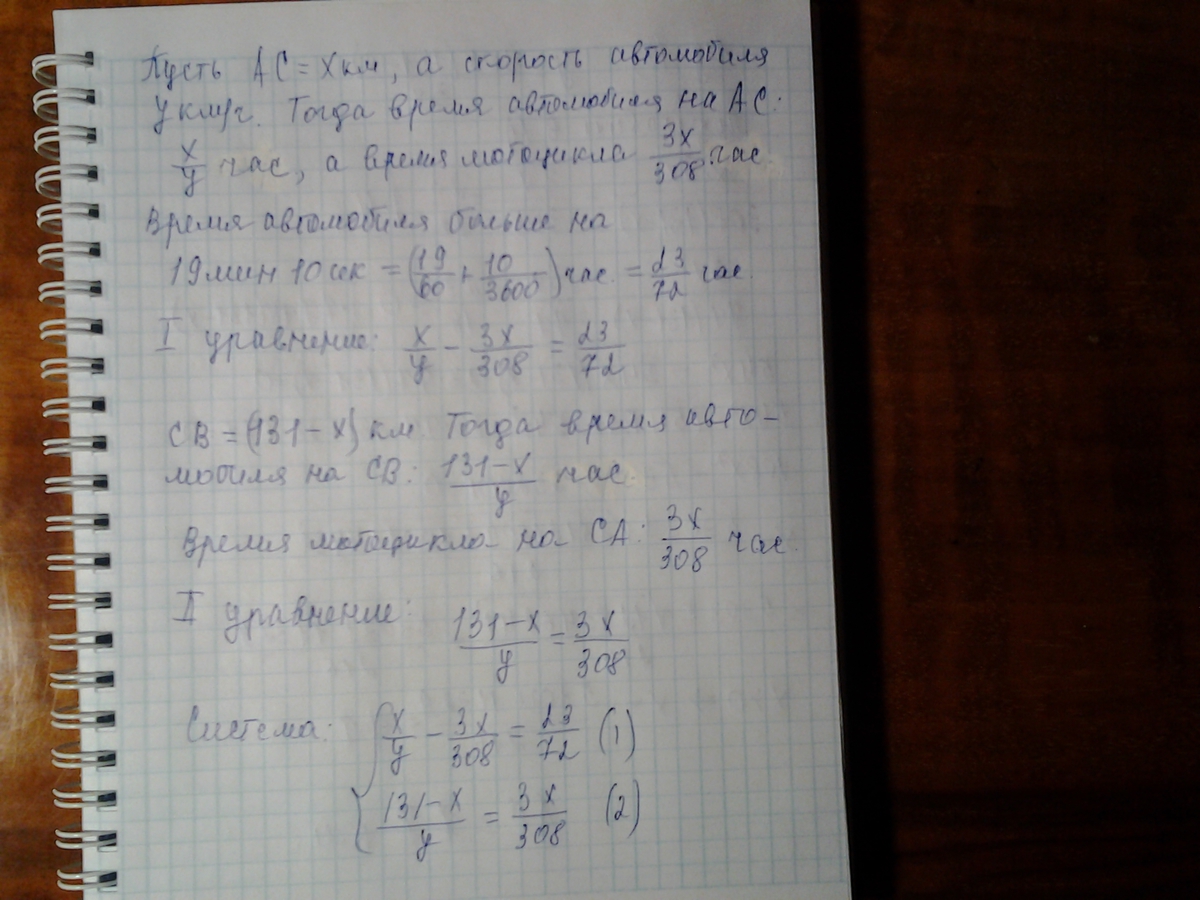 Пусть AC = x км, а скорость автомобиля
y км/ч. Тогда время автомобиля на AC:
x/y час, а время мотоцикла 3x/308 час
Время автомобиля больше на
19 мин 10 сек = (19/60 + 10/3600) час = 23/72 час.
I уравнение: x/y - 3x/308 = 23/72
CB = (131-x) км. Тогда время авто-
мобиля на CB: 131-x/y час.
Время мотоцикла на CA: 3x/308 час.
II уравнение: 131-x/y = 3x/308
Система: { x/y - 3x/308 = 23/72 (1)
131-x/y = 3x/308 (2)